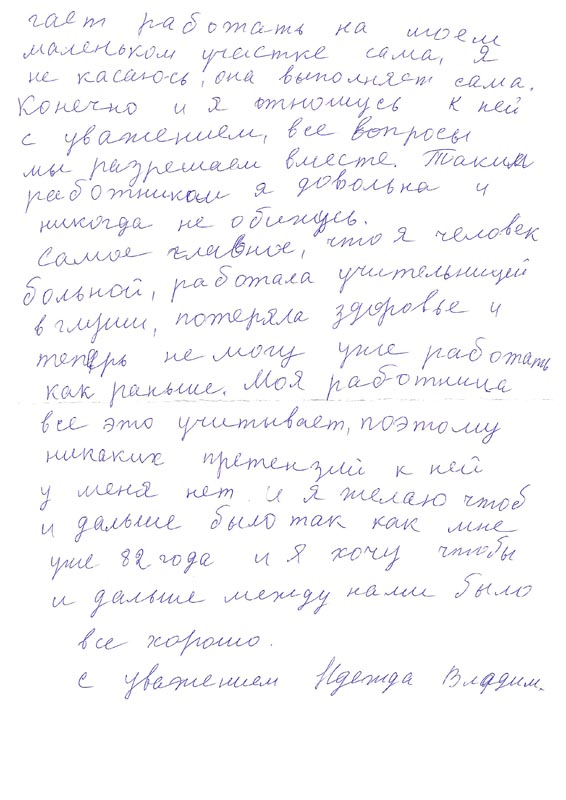 гает работать на моем
маленьком участке сама, я
не касаюсь, она выполняет сама.
Конечно и я отношусь к ней
с уважением, все вопросы
мы разрешаем вместе. Таким
работником я довольна и
никогда не обижусь.
Самое главное, что я человек
больной, работала учительницей
в глуши, потеряла здоровье и
теперь не могу уже работать
как раньше. Моя работница
все это учитывает, поэтому
никаких претензий к ней
у меня нет и я желаю чтоб
и дальше было так как мне
уже 82 года и я хочу чтобы
и дальше между нами было
все хорошо.
с уважением Надежда Владим.